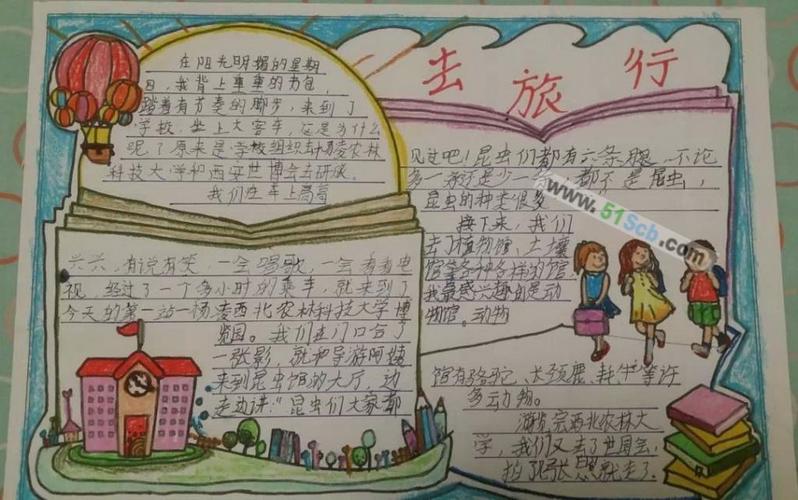 去旅行
在阳光明媚的星期
日,我背上重重的书包,
踏着有节奏的脚步,来到了
学校,坐上大客车,这是为什么
呢?原来是学校组织去杨凌农林
科技大学和西安世博会去研旅。
我们在车上高高
兴兴,有说有笑,一会唱歌,一会看看电
视,经过了一个多小时的乘车,就来到了
今天的第一站—杨凌西北农林科技大学博
览园。我们在门口合了
一张影,就和导游阿姨
来到昆虫馆的大厅,边
走边讲:“昆虫们大家都
见过吧!昆虫们都有六条腿,不论
多一条还是少一条,都不是昆虫,
昆虫的种类很多
接下来,我们
去了植物馆、土壤
馆等各种各样的馆,
我最感兴趣的是动
物馆。动物
馆有骆驼、长颈鹿、牦牛等许
多动物。
游览完西北农林大
学,我们又去了世园会,
拍了张照就走了.
www.51Scb.com